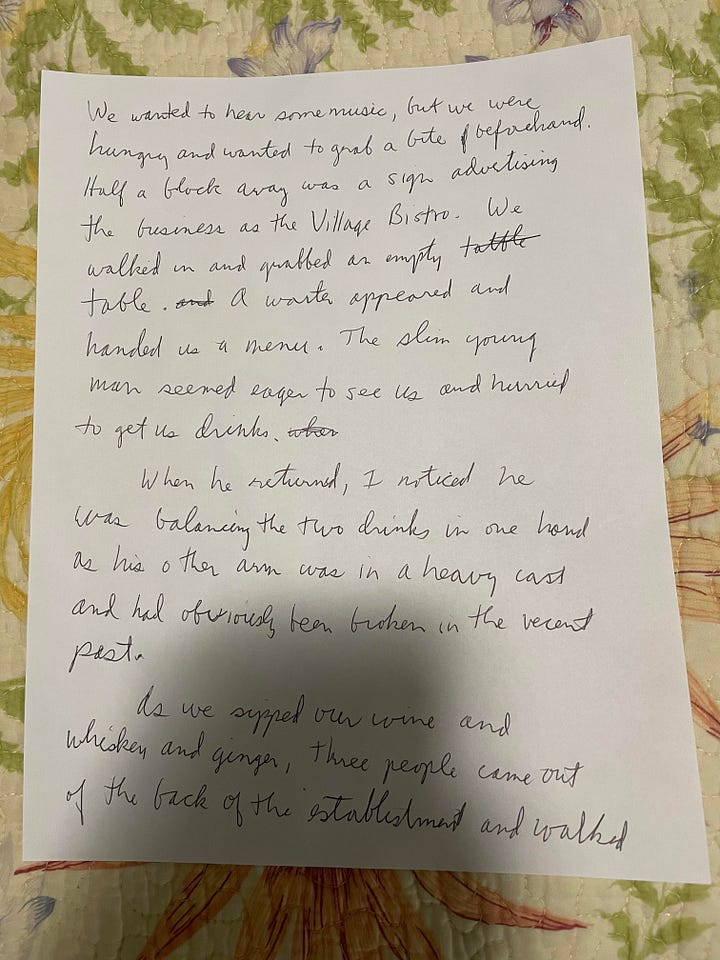 We wanted to hear some music, but we were
hungry and wanted to grab a bite beforehand.
Half a block away was a sign advertising
the business as the Village Bistro. We
walked in and grabbed an empty tattle
table. and A waiter appeared and
handed us a menu. The slim young
man seemed eager to see us and hurried
to get us drinks. when
When he returned, I noticed he
was balancing the two drinks in one hand
as his other arm was in a heavy cast
and had obviously been broken in the recent
past.
As we sipped our wine and
whiskey and ginger, three people came out
of the back of the establishment and walked